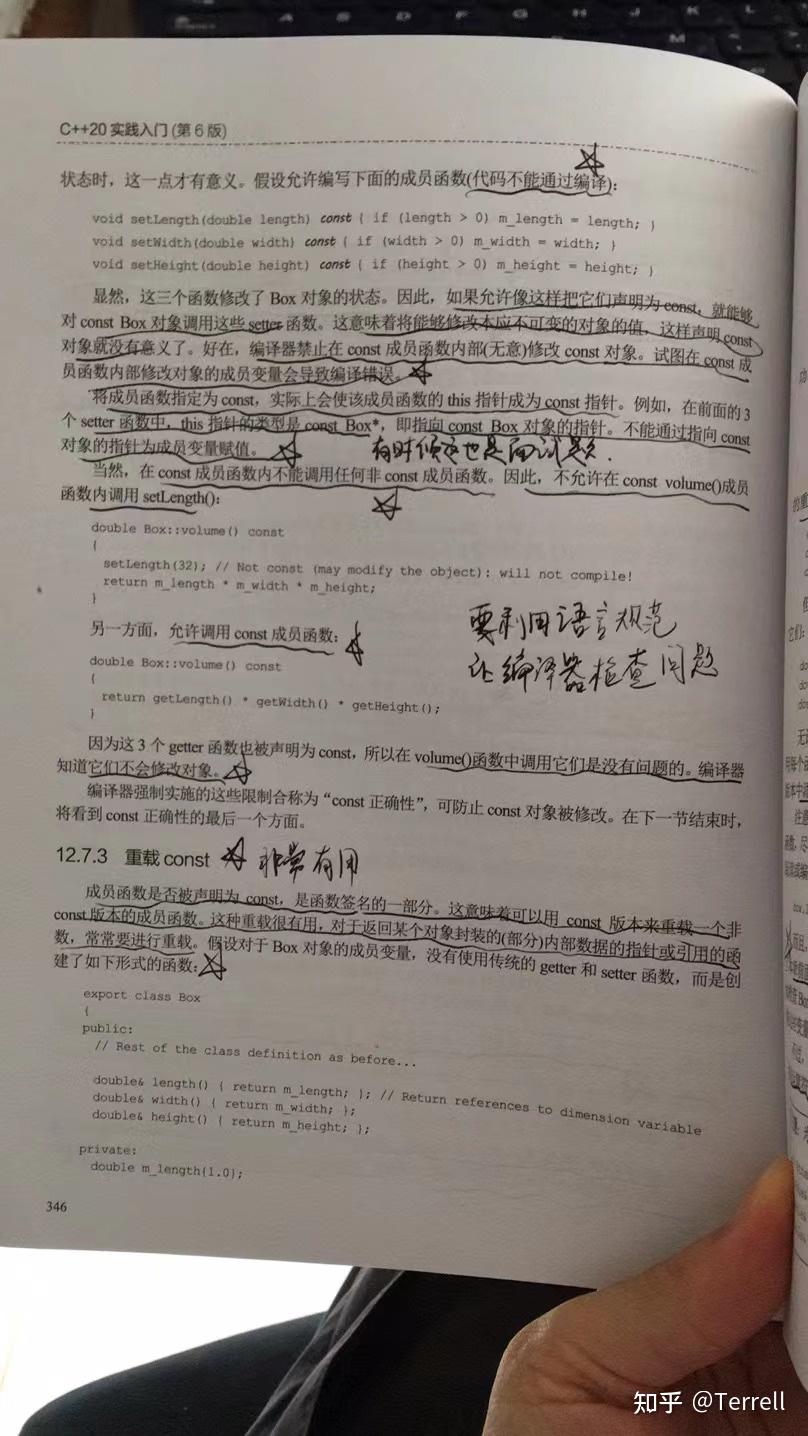 C++20 实践入门(第 6 版)
状态时，这一点才有意义。假设允许编写下面的成员函数(代码不能通过编译)：
void setLength(double length) const { if (length > 0) m_length = length; }
void setWidth(double width) const { if (width > 0) m_width = width; }
void setHeight(double height) const { if (height > 0) m_height = height; }
显然，这三个函数修改了 Box 对象的状态。因此，如果允许像这样把它们声明为 const，就能够
对 const Box 对象调用这些 setter 函数。这意味着将能够修改本应不可变的对象的值，这样声明 const
对象就没有意义了。好在，编译器禁止在 const 成员函数内部(无意)修改 const 对象。试图在 const 成
员函数内部修改对象的成员变量会导致编译错误。
将成员函数指定为 const，实际上会使该成员函数的 this 指针成为 const 指针。例如，在前面的 3
个 setter 函数中，this 指针的类型是 const Box*，即指向 const Box 对象的指针。不能通过指向 const
对象的指针为成员变量赋值。
有时候这也是面试题.
当然，在 const 成员函数内不能调用任何非 const 成员函数。因此，不允许在 const volume()成员
函数内调用 setLength()：
double Box::volume() const
{
setLength(32); // Not const (may modify the object): will not compile!
return m_length * m_width * m_height;
}
要利用语言规范
让编译器检查问题
另一方面，允许调用 const 成员函数：
double Box::volume() const
{
return getLength() * getWidth() * getHeight();
}
因为这 3 个 getter 函数也被声明为 const，所以在 volume()函数中调用它们是没有问题的。编译器
知道它们不会修改对象。
编译器强制实施的这些限制合称为“const 正确性”，可防止 const 对象被修改。在下一节结束时，
将看到 const 正确性的最后一个方面。
12.7.3 重载 const
非常有用
成员函数是否被声明为 const，是函数签名的一部分。这意味着可以用 const 版本来重载一个非
const 版本的成员函数。这种重载很有用，对于返回某个对象封装的(部分)内部数据的指针或引用的函
数，常常要进行重载。假设对于 Box 对象的成员变量，没有使用传统的 getter 和 setter 函数，而是创
建了如下形式的函数：
export class Box
{
public:
// Rest of the class definition as before...
double& length() { return m_length; }; // Return references to dimension variable
double& width() { return m_width; };
double& height() { return m_height; };
private:
double m_length{1.0};
346
知乎 @Terrell